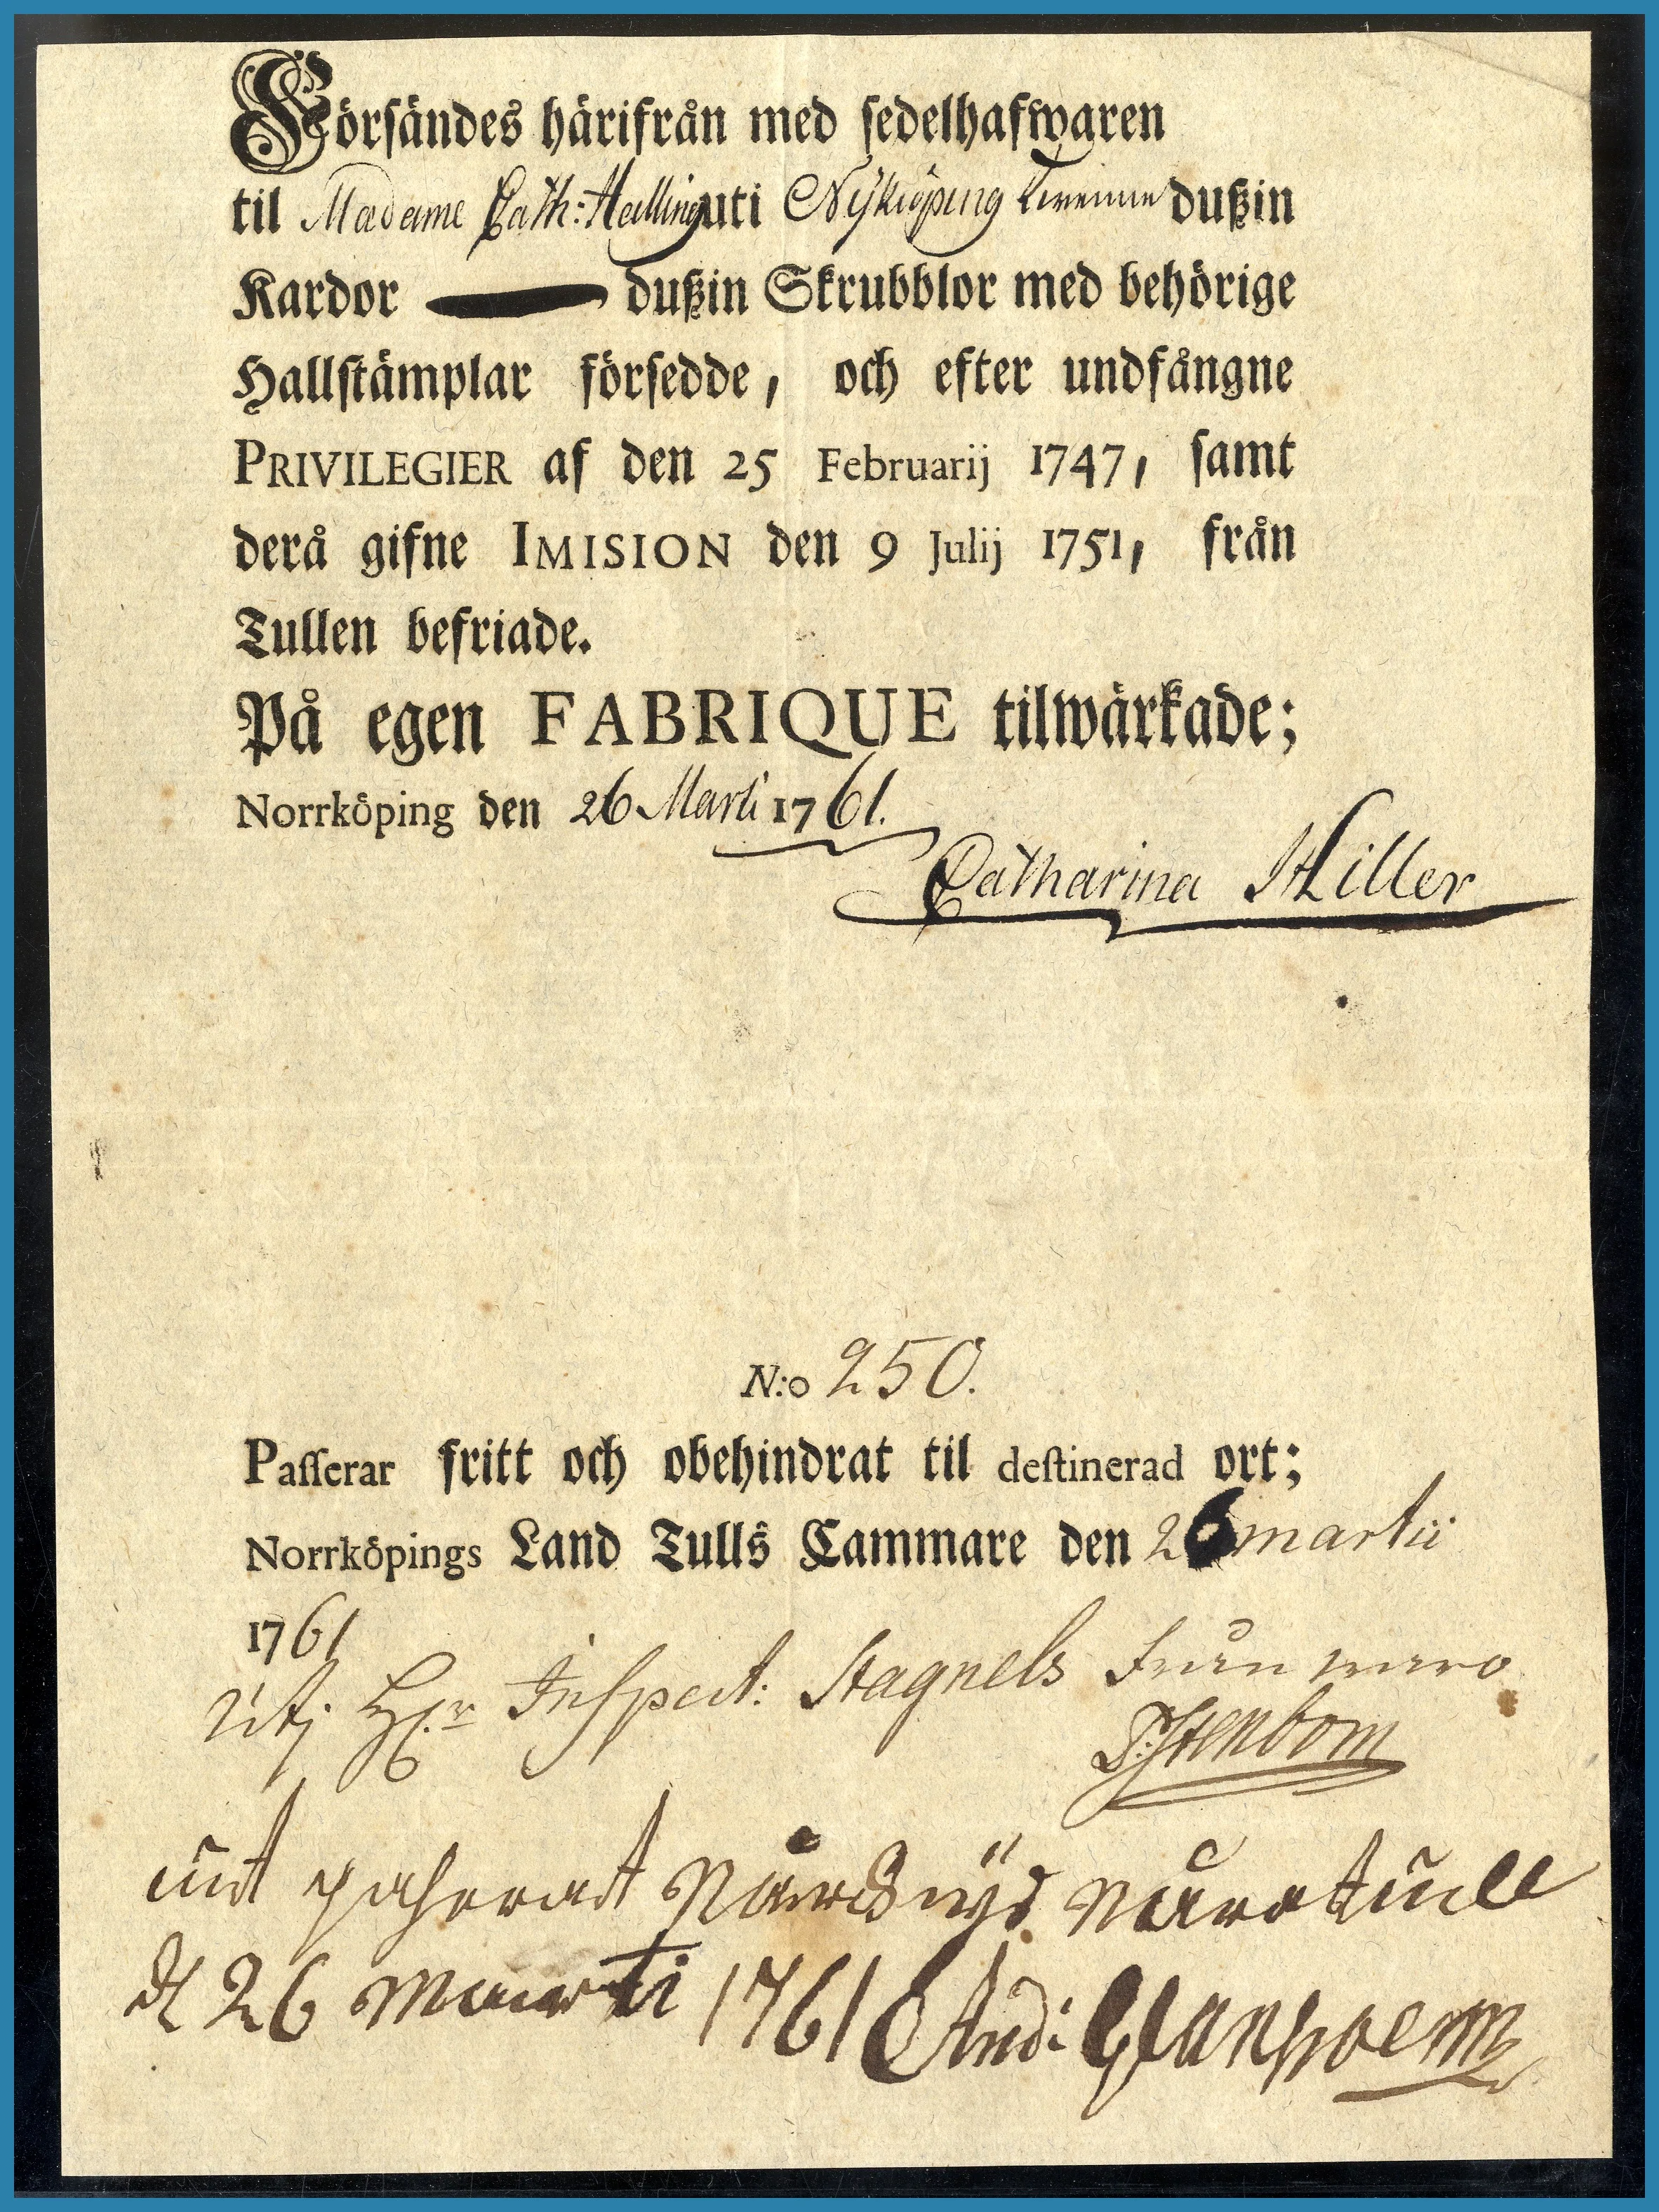 Försändes härifrån med sedelhafwaren
til Madame Cath: Halling uti Nyköping Tvenne dußin
Kardor dußin Skrubblor med behörige
Hallstämplar försedde, och efter undfångne
PRIVILEGIER af den 25 Februarij 1747, samt
derå gifne IMISION den 9 Julij 1751, från
Tullen befriade.
På egen FABRIQUE tilwärkade;
Norrköping den 26 Marti 1761.
Catharina Hiller
N:o 250.
Passerar fritt och obehindrat til destinerad ort;
Norrköpings Land Tulls Cammare den 26 martii
1761
Uti Hr Inspect: Stagnels frånwaro
Stenbom
uit passerat Norrkiöps Norretull
d 26 Marti 1761 And: